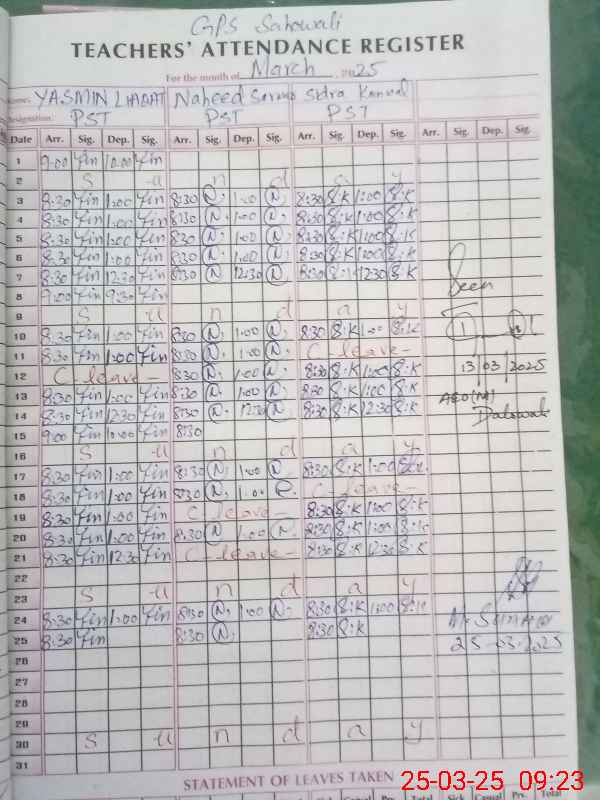 GPS Sahowali
TEACHERS' ATTENDANCE REGISTER
For the month of March 2025
Name: YASMIN LIAQAT Naheed Sarwar Sidra Kanwal
Designation: PST PST PST
Date Arr. Sig. Dep. Sig. Arr. Sig. Dep. Sig. Arr. Sig. Dep. Sig. Arr. Sig. Dep. Sig.
1 9:00 Yin 10:00 Yin
2 S u n d a y
3 8:30 Yin 1:00 Yin 8:30 N 1:00 N 8:30 S:K 1:00 S:K
4 8:30 Yin 1:00 Yin 8:30 N 1:00 N 8:30 S:K 1:00 S:K
5 8:30 Yin 1:00 Yin 8:30 N 1:00 N 8:30 S:K 1:00 S:K
6 8:30 Yin 1:00 Yin 8:30 N 1:00 N 8:30 S:K 1:00 S:K
7 8:30 Yin 12:30 Yin 8:30 N 12:30 N 8:30 S:K 12:30 S:K
Seen
8 9:00 Yin 9:30 Yin
9 S u n d a y
10 8:30 Yin 1:00 Yin 8:30 N 1:00 N 8:30 S:K 1:00 S:K
11 8:30 Yin 1:00 Yin 8:30 N 1:00 N C-leave-
12 C-leave- 8:30 N 1:00 N 8:30 S:K 1:00 S:K 13/03/2025
13 8:30 Yin 1:00 Yin 8:30 N 1:00 N 8:30 S:K 1:00 S:K AEO(M)
14 8:30 Yin 12:30 Yin 8:30 N 12:30 N 8:30 S:K 12:30 S:K
15 9:00 Yin 10:00 Yin 8:30
16 S u n d a y
17 8:30 Yin 1:00 Yin 8:30 N 1:00 N 8:30 S:K 1:00 S:K
18 8:30 Yin 1:00 Yin 8:30 N 1:00 C-leave-
19 8:30 Yin 1:00 Yin C-leave- 8:30 S:K 1:00 S:K
20 8:30 Yin 1:00 Yin 8:30 N 1:00 N 8:30 S:K 1:00 S:K
21 8:30 Yin 12:30 Yin C-leave- 8:30 S:K 12:30 S:K
22
23 S u n d a y
24 8:30 Yin 1:00 Yin 8:30 N 1:00 N 8:30 S:K 1:00 S:K
25 8:30 Yin 8:30 N 8:30 S:K 25-03-2025
26
27
28
29
30 S u n d a y
31
STATEMENT OF LEAVES TAKEN
25-03-25 09:23
Sick Casual Pre. Total Sick Casual Pre. Total